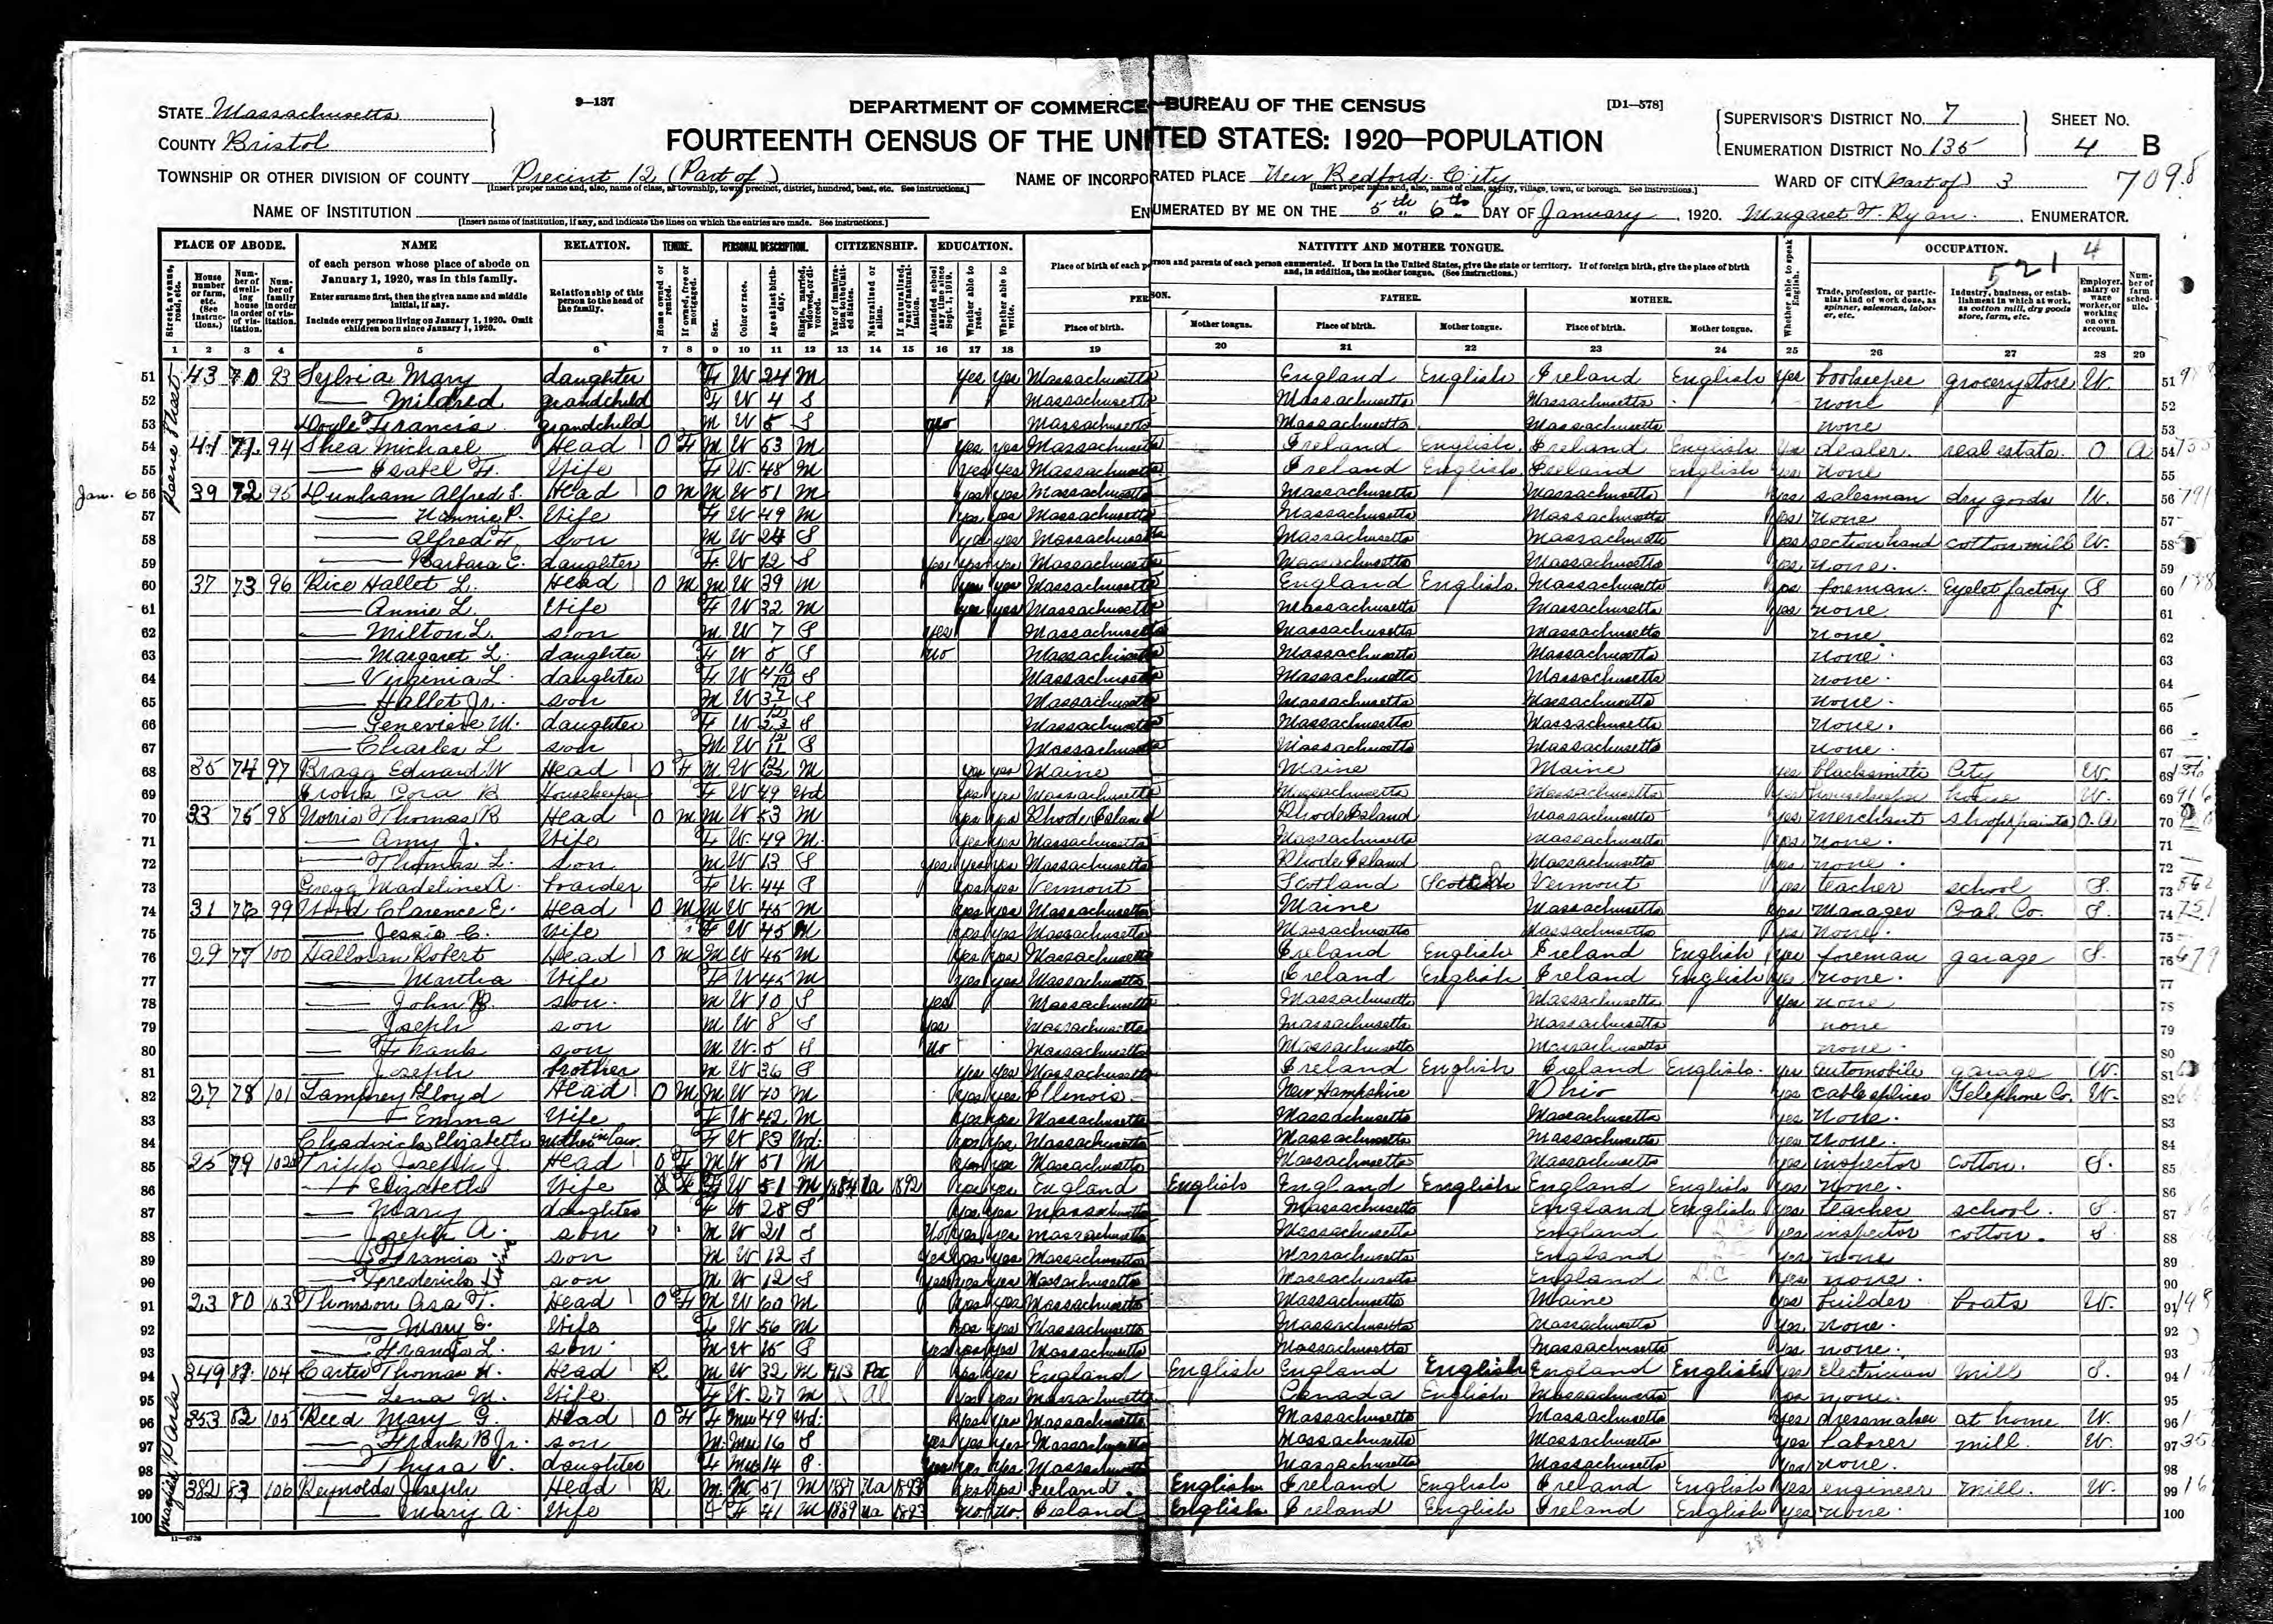 9—137
DEPARTMENT OF COMMERCE—BUREAU OF THE CENSUS
[D1—578]
STATE Massachusetts
COUNTY Bristol
FOURTEENTH CENSUS OF THE UNITED STATES: 1920—POPULATION
SUPERVISOR'S DISTRICT No. 7
ENUMERATION DISTRICT No. 135
SHEET No. 4 B
7098
TOWNSHIP OR OTHER DIVISION OF COUNTY Precinct 12 (Part of)
NAME OF INCORPORATED PLACE New Bedford City
WARD OF CITY (Part of) 3
NAME OF INSTITUTION
[Insert name of institution, if any, and indicate the lines on which the entries are made. See instructions.]
ENUMERATED BY ME ON THE 5th 6th DAY OF January, 1920. Margaret F. Ryan. ENUMERATOR.
PLACE OF ABODE. NAME RELATION. TENURE. PERSONAL DESCRIPTION. CITIZENSHIP. EDUCATION. NATIVITY AND MOTHER TONGUE. OCCUPATION.
of each person whose place of abode on January 1, 1920, was in this family.
Enter surname first, then the given name and middle initial, if any.
Include every person living on January 1, 1920. Omit children born since January 1, 1920.
Relationship of this person to the head of the family.
Place of birth of each person and parents of each person enumerated. If born in the United States, give the state or territory. If of foreign birth, give the place of birth and, in addition, the mother tongue. (See instructions.)
PERSON. FATHER. MOTHER.
Place of birth. Mother tongue. Place of birth. Mother tongue. Place of birth. Mother tongue.
1 2 3 4 5 6 7 8 9 10 11 12 13 14 15 16 17 18 19 20 21 22 23 24 25 26 27 28 29
51 43 70 93 Sylvia Mary daughter F W 24 M yes yes Massachusetts England English Ireland English yes bookeeper grocery store W 51
52 — Mildred grandchild F W 4 S Massachusetts Massachusetts Massachusetts none 52
53 Doyle Francis grandchild M W 5 S no Massachusetts Massachusetts Massachusetts none 53
54 41 71 94 Shea Michael Head O F M W 53 M yes yes Massachusetts Ireland English Ireland English yes dealer real estate O A 54
55 — Isabel F. Wife F W 48 M yes yes Massachusetts Ireland English Ireland English yes none 55
Jan. 6 56 39 72 95 Dunham Alfred S. Head O M M W 51 M yes yes Massachusetts Massachusetts Massachusetts yes salesman dry goods W. 56
57 — Nannie P. Wife F W 49 M yes yes Massachusetts Massachusetts Massachusetts yes none 57
58 — Alfred F. son M W 24 S yes yes Massachusetts Massachusetts Massachusetts yes section hand cotton mill W. 58
59 — Barbara E. daughter F W 12 S yes yes yes Massachusetts Massachusetts Massachusetts yes none. 59
60 37 73 96 Rice Hallet L. Head O M M W 39 M yes yes Massachusetts England English Massachusetts yes foreman Eyelet factory S 60
61 — Annie L. Wife F W 32 M yes yes Massachusetts Massachusetts Massachusetts yes none 61
62 — Milton L. son M W 7 S yes Massachusetts Massachusetts Massachusetts none 62
63 — Margaret L. daughter F W 5 S no Massachusetts Massachusetts Massachusetts none 63
64 — Virginia L. daughter F W 4 10/12 S Massachusetts Massachusetts Massachusetts none 64
65 — Hallet Jr. son M W S Massachusetts Massachusetts Massachusetts none. 65
66 — Genevieve M. daughter F W S Massachusetts Massachusetts Massachusetts none. 66
67 — Charles L son M W S Massachusetts Massachusetts Massachusetts none. 67
68 35 74 97 Bragg Edward W Head O F M W M yes yes Maine Maine Maine yes blacksmith City W. 68
69 Cora B Housekeeper F W 49 Wd yes yes Massachusetts Massachusetts Massachusetts yes housekeeper home W. 69
70 33 75 98 Norris Thomas R Head O M M W 53 M yes yes Rhode Island Rhode Island Massachusetts yes merchant O.A 70
71 — Amy J. Wife F W 49 M. yes yes Massachusetts Massachusetts Massachusetts yes none. 71
72 — Thomas L. son M W 13 S yes yes yes Massachusetts Rhode Island Massachusetts yes none. 72
73 Gregg Madeline A. boarder F W 44 S yes yes Vermont Scotland Scotch Vermont yes teacher school S. 73
74 31 76 99 Wood Clarence E. Head O M M W 45 M yes yes Massachusetts Maine Massachusetts yes manager Coal Co. S. 74
75 — Jessie C. Wife F W 45 M yes yes Massachusetts Massachusetts Massachusetts yes none. 75
76 29 77 100 Halloran Robert Head O M M W 45 M yes yes Massachusetts Ireland English Ireland English yes foreman garage S. 76
77 — Martha Wife F W 45 M yes yes Massachusetts Ireland English Ireland English yes none. 77
78 — John son. M W 10 S yes Massachusetts Massachusetts Massachusetts yes none 78
79 — Joseph son M W 8 S yes Massachusetts Massachusetts Massachusetts none 79
80 — Frank son M W 5 S no Massachusetts Massachusetts Massachusetts none. 80
81 — Joseph brother M W 36 S yes yes Massachusetts Ireland English Ireland English. yes automobile garage W. 81
82 27 78 101 Lamprey Lloyd Head O M M W 40 M yes yes Illinois New Hampshire Ohio yes cable splicer Telephone Co. W. 82
83 — Emma Wife F W 42 M yes yes Massachusetts Massachusetts Massachusetts yes none. 83
84 Chadwick Elizabeth mother in law. F W 83 Wd. yes yes Massachusetts Massachusetts Massachusetts yes none. 84
85 25 79 102 Tripp Joseph J. Head O F M W 51 M yes yes Massachusetts Massachusetts Massachusetts yes inspector cotton. S. 85
86 — Elizabeth Wife F W 51 M 1884 Na 1892 yes yes England English England English England English yes none. 86
87 — Mary daughter F W 28 S yes yes Massachusetts Massachusetts England English yes teacher school. S. 87
88 — Joseph A. son M W 21 S No yes yes Massachusetts Massachusetts England yes inspector cotton. S 88
89 — Francis son M W 12 S yes yes yes Massachusetts Massachusetts England yes none 89
90 — Frederick twins son M W 12 S yes yes yes Massachusetts Massachusetts England yes none. 90
91 23 80 103 Thomson Asa T. Head O F M W 60 M yes yes Massachusetts Massachusetts Maine yes builder boats W. 91
92 — Mary S. Wife F W 56 M yes yes Massachusetts Massachusetts Massachusetts yes none. 92
93 — Francis L. son M W 15 S yes yes yes Massachusetts Massachusetts Massachusetts yes none. 93
94 349 81 104 Carter Thomas H. Head R M W 32 M 1913 Pa yes yes England English England English England English yes electrician mill S. 94
95 — Lena M. Wife F W 27 M Al yes yes Massachusetts Canada English Massachusetts yes none. 95
96 353 82 105 Reed Mary G. Head O F F Mu 49 Wd. yes yes Massachusetts Massachusetts Massachusetts yes dressmaker at home W. 96
97 — Frank B Jr. son M Mu 16 S yes yes yes Massachusetts Massachusetts Massachusetts yes laborer mill. W. 97
98 — Thyra V. daughter F Mu 14 S. yes yes yes Massachusetts Massachusetts Massachusetts yes none. 98
99 382 83 106 Reynolds Joseph Head R M 51 M 1887 Na 1893 yes yes Ireland English Ireland English Ireland English yes engineer mill. W. 99
100 — Mary A. Wife F 41 M 1889 Na 1893 no. no. Ireland English Ireland English Ireland English yes none 100
11—4726